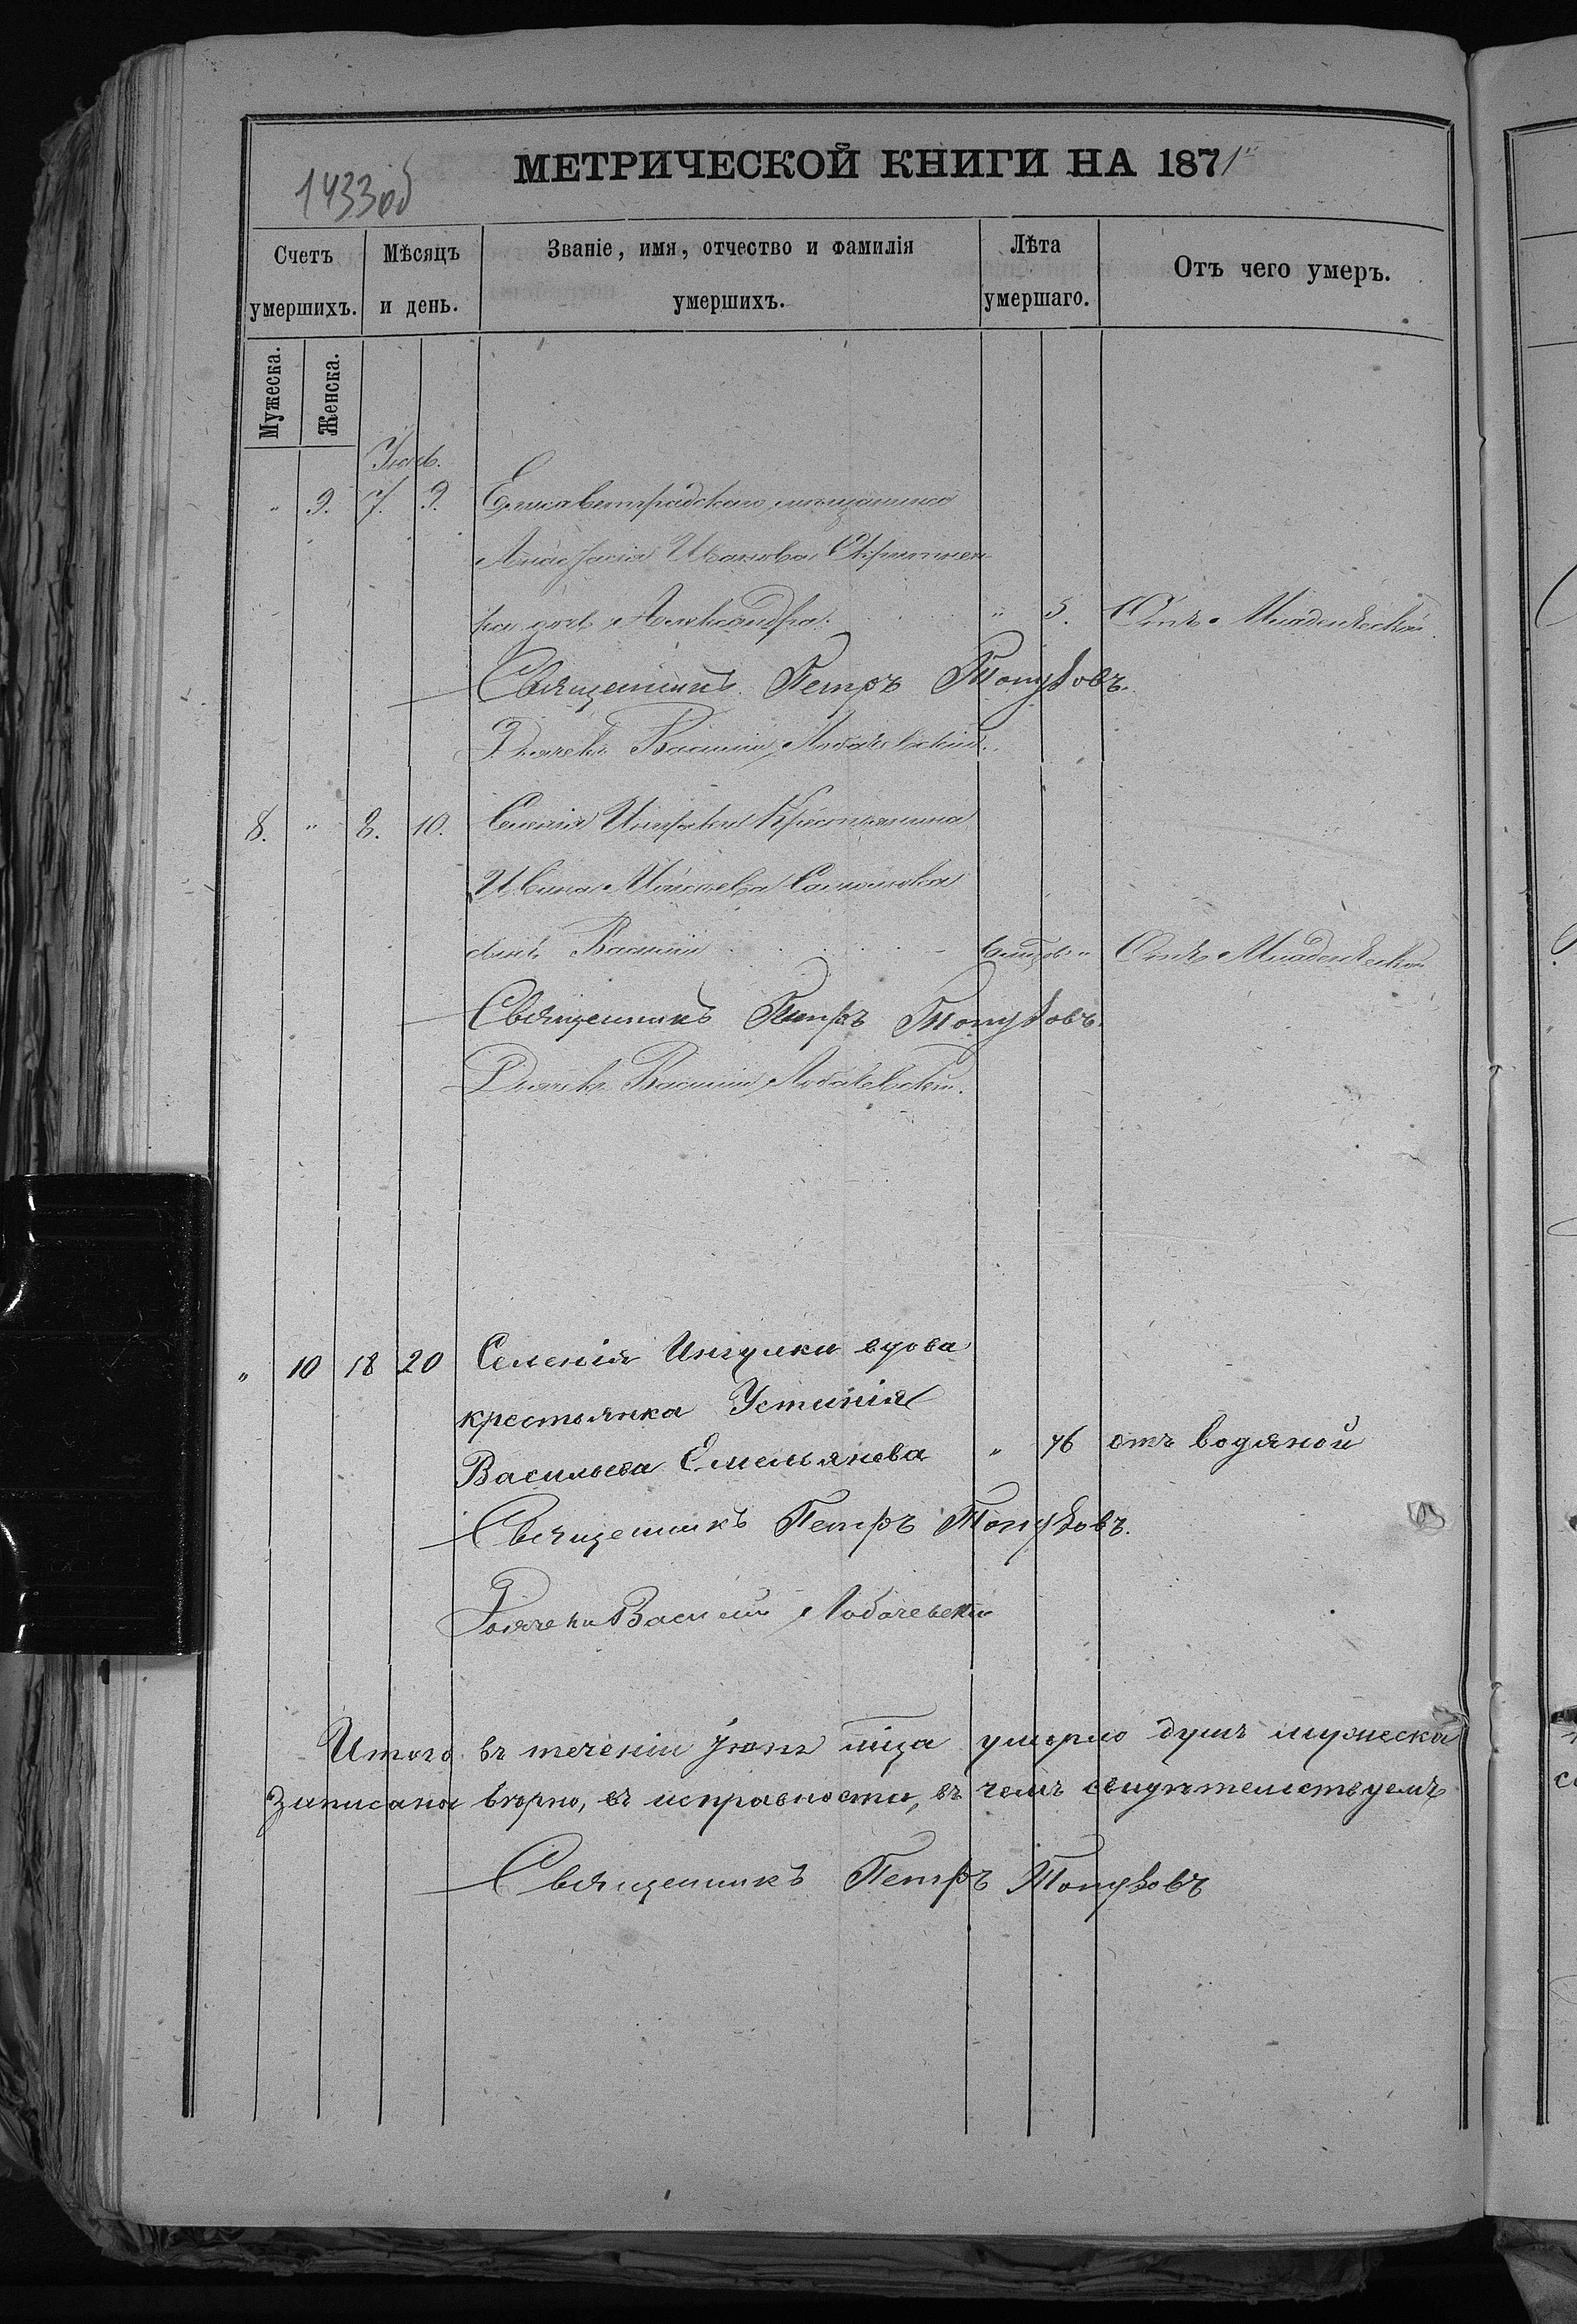 МЕТРИЧЕСКОЙ КНИГИ НА 1871
1433об
Счетъ умершихъ. Мѣсяцъ и день. Званіе, имя, отчество и фамилія умершихъ. Лѣта умершаго. Отъ чего умеръ.
Мужеска. Женска.
" 9. 7. 9. Елисаветградскаго мѣщанина
Иванова
дочь Александра. " 5. Отъ Младенческой.
Священникъ Петръ
Дьячекъ Василій Лобачевскій.
8. " 8. 10. Селенія Крестьянина
сынъ Василій " Отъ Младенческой
Священникъ Петръ
Дьячекъ Василій Лобачевскій.
" 10 18 20 Селенія Ингулки вдова
крестьянка Устинія
Васильева Емельянова " 76 отъ водяной
Священникъ Петръ
Дьячекъ Василій Лобачевскій
Итого въ теченіи Іюня мца умерло душъ мужеска
Записано вѣрно, въ исправности, въ чемъ свидѣтельствуемъ
Священникъ Петръ